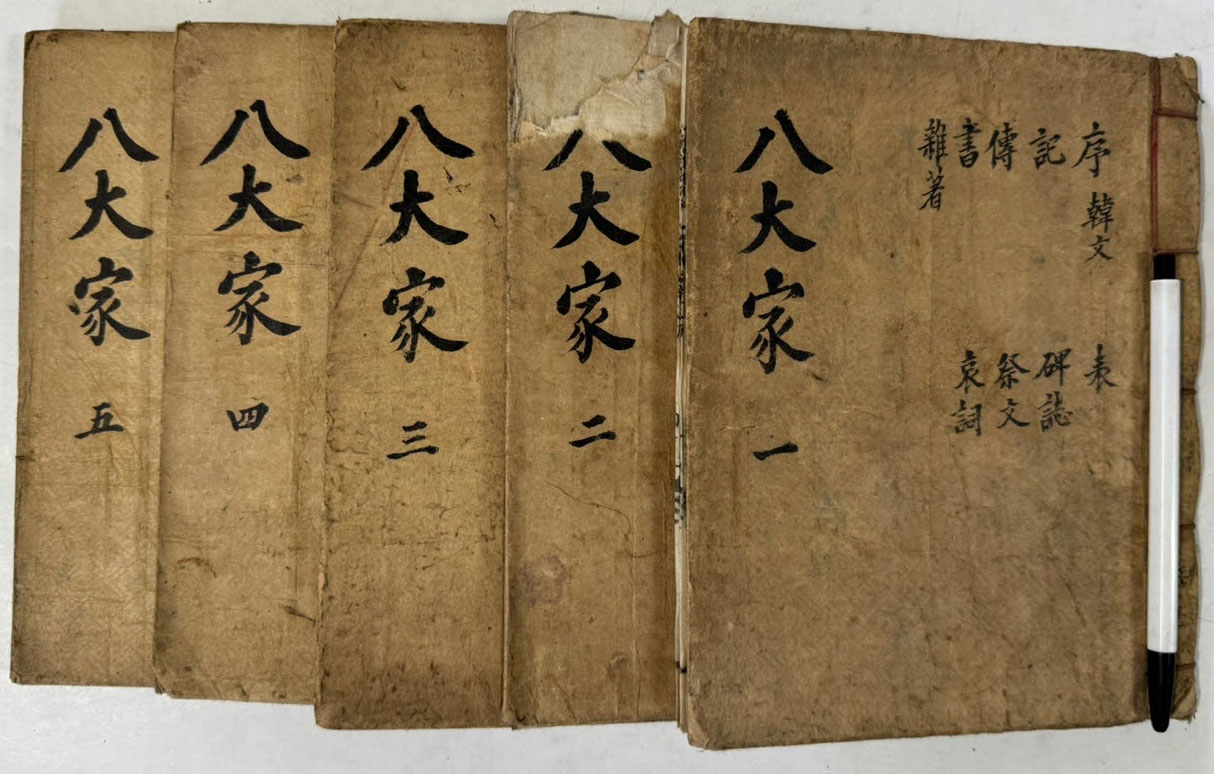 序 韓文
記
傳
書
雜著
表
碑誌
祭文
哀詞
八大家 一
八大家 二
八大家 三
八大家 四
八大家 五